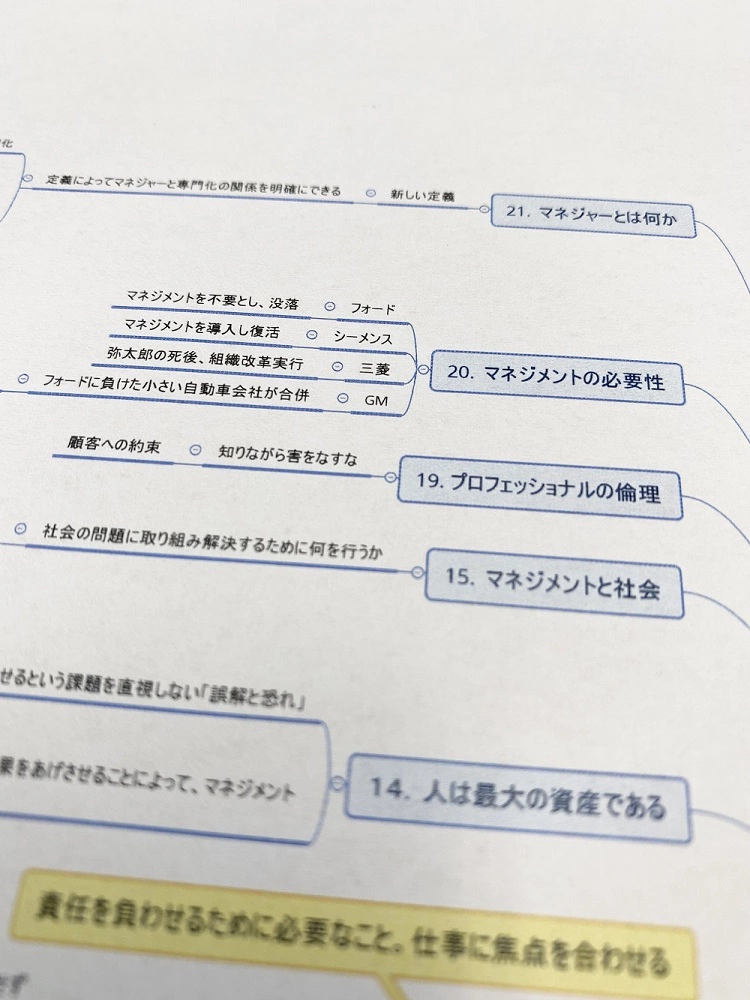 化
定義によってマネジャーと専門化の関係を明確にできる
新しい定義
21. マネジャーとは何か
マネジメントを不要とし、没落
フォード
マネジメントを導入し復活
シーメンス
弥太郎の死後、組織改革実行
三菱
フォードに負けた小さい自動車会社が合併
GM
20. マネジメントの必要性
顧客への約束
知りながら害をなすな
19. プロフェッショナルの倫理
社会の問題に取り組み解決するために何を行うか
15. マネジメントと社会
せるという課題を直視しない「誤解と恐れ」
果をあげさせることによって、マネジメント
14. 人は最大の資産である
責任を負わせるために必要なこと。仕事に焦点を合わせる